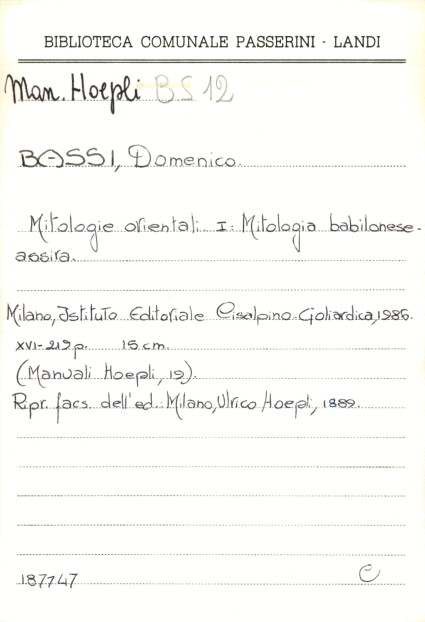 BIBLIOTECA COMUNALE PASSERINI - LANDI
Man. Hoepli BS 12
BASSI, Domenico.
Mitologie orientali. I: Mitologia babilonese-
assira.
Milano, Istituto Editoriale Cisalpino-Goliardica, 1986.
XVI-219 p. 15 cm.
(Manuali Hoepli, 19).
Ripr. facs. dell'ed.: Milano, Ulrico Hoepli, 1899.
187747 C